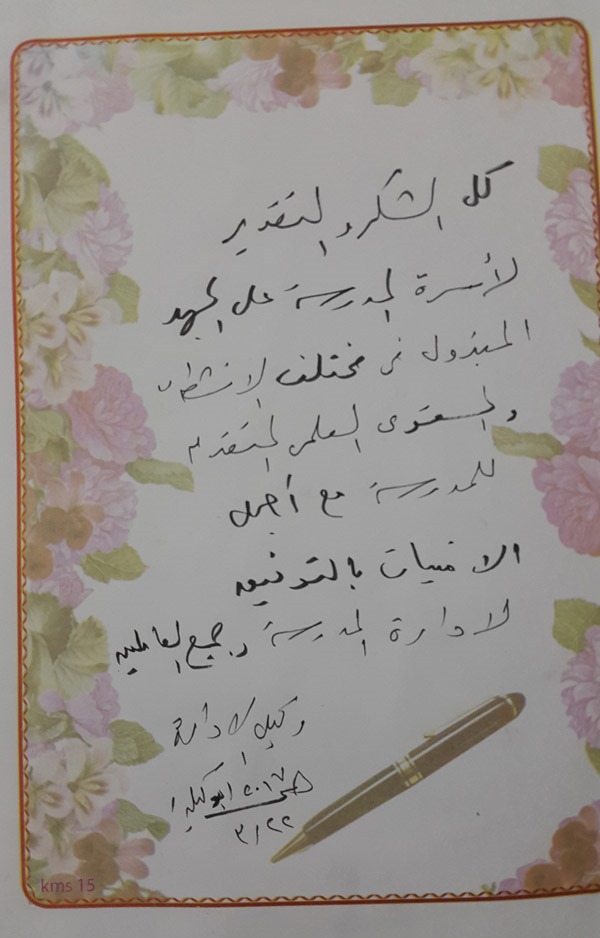 كل الشكر والتقدير
لأسرة المدرسة على الجهد
المبذول فى مختلف الانشطة
والمستوى العلمى المتقدم
للمدرسة مع أجمل
الامنيات بالتوفيق
لادارة المدرسة وجميع العاملين
وكيل الادارة
٢٠١٧
٣/٢٢
kms 15